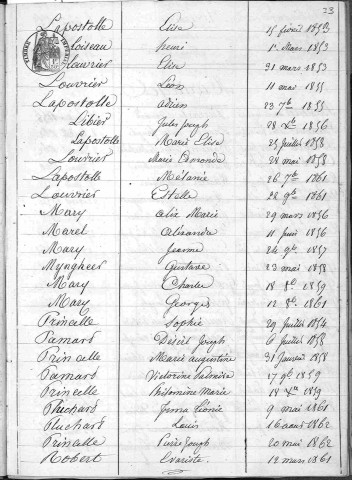 23
Lapostolle Elise 15 févril 1853
Loiseau henri 1er Mars 1853
Louvrier Elise 31 mars 1853
Louvrier Léon 11 mai 1855
Lapostolle Adrien 23 7b 1855
Libier Jules Joseph 28 Xb 1856
Lapostolle Marie Elise 25 Juillet 1858
Louvrier Marie Esmonde 28 mai 1858
Lapostolle Mélanie 26 7b 1861
Louvrier Estelle 22 9b 1861
Mary Marie 29 mars 1856
Marel Alexandre 11 Juin 1856
Mary Jeanne 24 9b 1857
Myngheer Gustave 23 mai 1858
Mary Charles 18 8b 1859
Mary Georges 12 8b 1861
Princelle Sophie 29 Juillet 1854
Pamard Désiré Joseph 6 Juillet 1855
Princelle Marie augustine 31 Janvier 1858
Pamard Victorine Palmire 17 9b 1859
Princelle Philomine Marie 14 Xb 1859
Pluchard Irma Léonie 9 mai 1861
Pluchard Louis 16 août 1862
Princelle Pierre Joseph 20 mai 1862
Robert Evariste 12 mars 1861